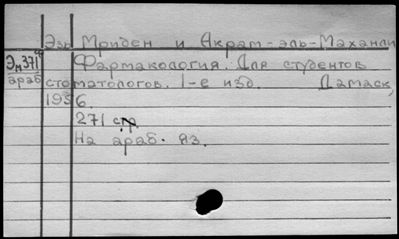 Эзз Мриден и Акрам-эль-Маханли
Эм371 Фармакология. Для студентов
араб стоматологов. 1-е изд. Дамаск,
1956.
271 стр.
На араб. яз.